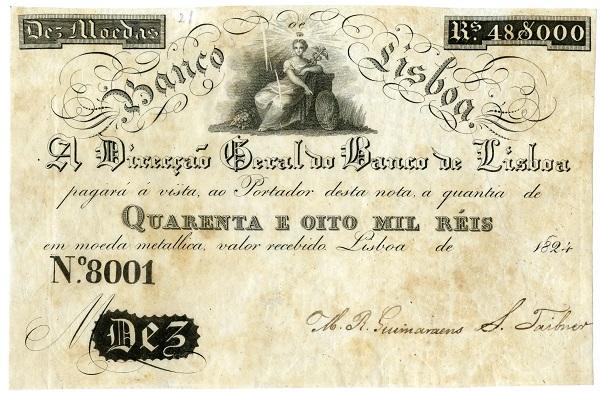 Dez Moedas
21
Rs. 48$000
Banco de Lisboa
A Direcção Geral do Banco de Lisboa
pagará á vista, ao Portador desta nota, a quantia de
QUARENTA E OITO MIL RÉIS
em moeda metallica, valor recebido. Lisboa de 1824
No. 8001
M
Dez
M. R. Guimaraens S.